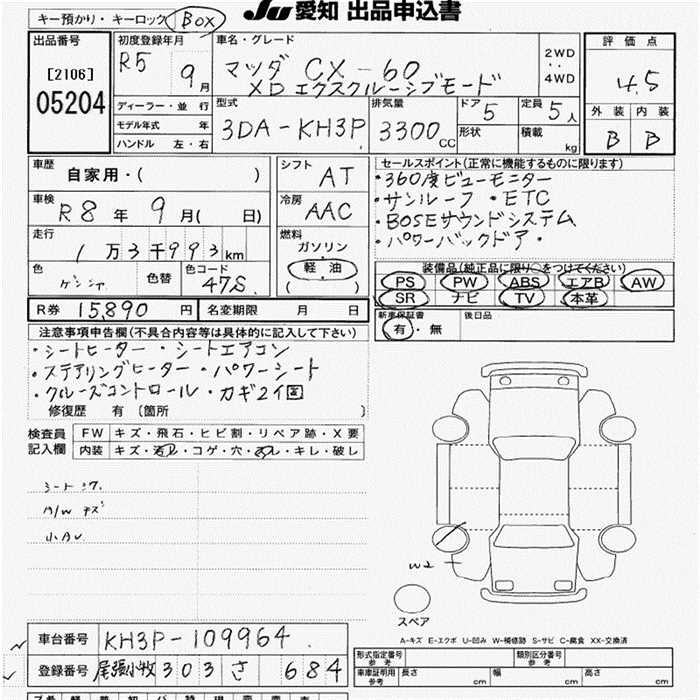 キー預かり・キーロック BOX
JU 愛知 出品申込書
出品番号
[2106]
05204
初度登録年月
R5 9月
車名・グレード
マツダ CX-60
XD エクスクルーシブモード
2WD
・・
4WD
評価点
4.5
外装 内装
B B
ディーラー・並行
モデル年式 年
ハンドル 左・右
型式
3DA-KH3P
排気量
3300 CC
ドア 5
形状
定員 5人
積載 kg
車歴
自家用・( )
車検
R8年 9月( 日)
走行
1万3千993km
色
色替
( )
色コード
47S
シフト
AT
冷房
AAC
燃料
ガソリン
軽・油
( )
セールスポイント(正常に機能するものに限ります)
・360度ビューモニター
・サンルーフ ・ETC
・BOSEサウンドシステム
・パワーバックドア・
装備品(純正品に限り○をつけてください)
PS PW ABS エアB AW
SR ナビ TV 本革
新車保証書
有・無
後日品
R券 15,890円
名変期限 月 日
注意事項申告欄(不具合内容等は具体的に記入して下さい)
・シートヒーター ・シートエアコン
・ステアリングヒーター ・パワーシート
・クルーズコントロール ・カギ2個
修復歴 有 [箇所 ]
検査員
記入欄
FW キズ・飛石・ヒビ割・リペア跡・X要
内装 キズ・汚レ・コゲ・穴・スレ・キレ・破レ
A/W キズ
W2
スペア
A-キズ E-エクボ U-凹み W-補修跡 S-サビ C-腐食 XX-交換済
車台番号 KH3P-109964
登録番号 尾張小牧 303 さ 684
形式指定番号
参考
類別区分番号
参考
車庫証明用
参考
長さ cm
幅 cm
高さ cm